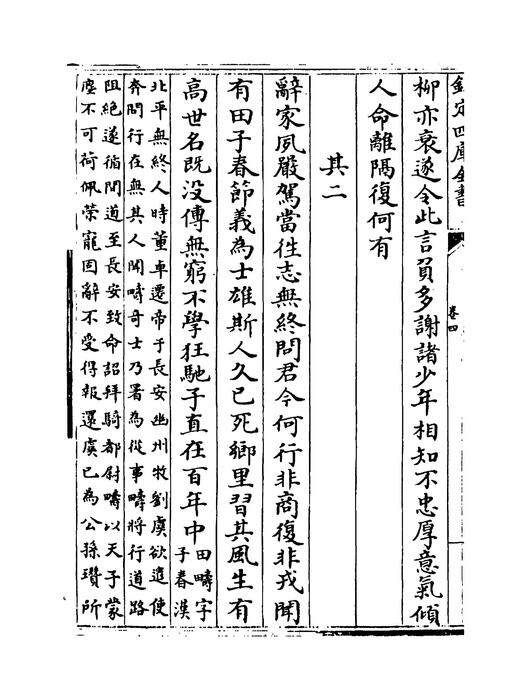 欽定四庫全書
卷四
柳亦衰遂令此言負多謝諸少年相知不忠厚意氣傾
人命離隔復何有
其二
辭家夙嚴駕當往志無終問君今何行非商復非戎聞
有田子春節義為士雄斯人久已死鄉里習其風生有
高世名既没傳無窮不學狂馳子直在百年中田疇字
子春漢
北平無終人時董卓遷帝于長安幽州牧劉虞欲遣使
奔問行在無其人聞疇奇士乃署為從事疇將行道路
阻絶遂循間道至長安致命詔拜騎都尉疇以天子蒙
塵不可荷佩榮寵固辭不受得報還虞已為公孫瓚所